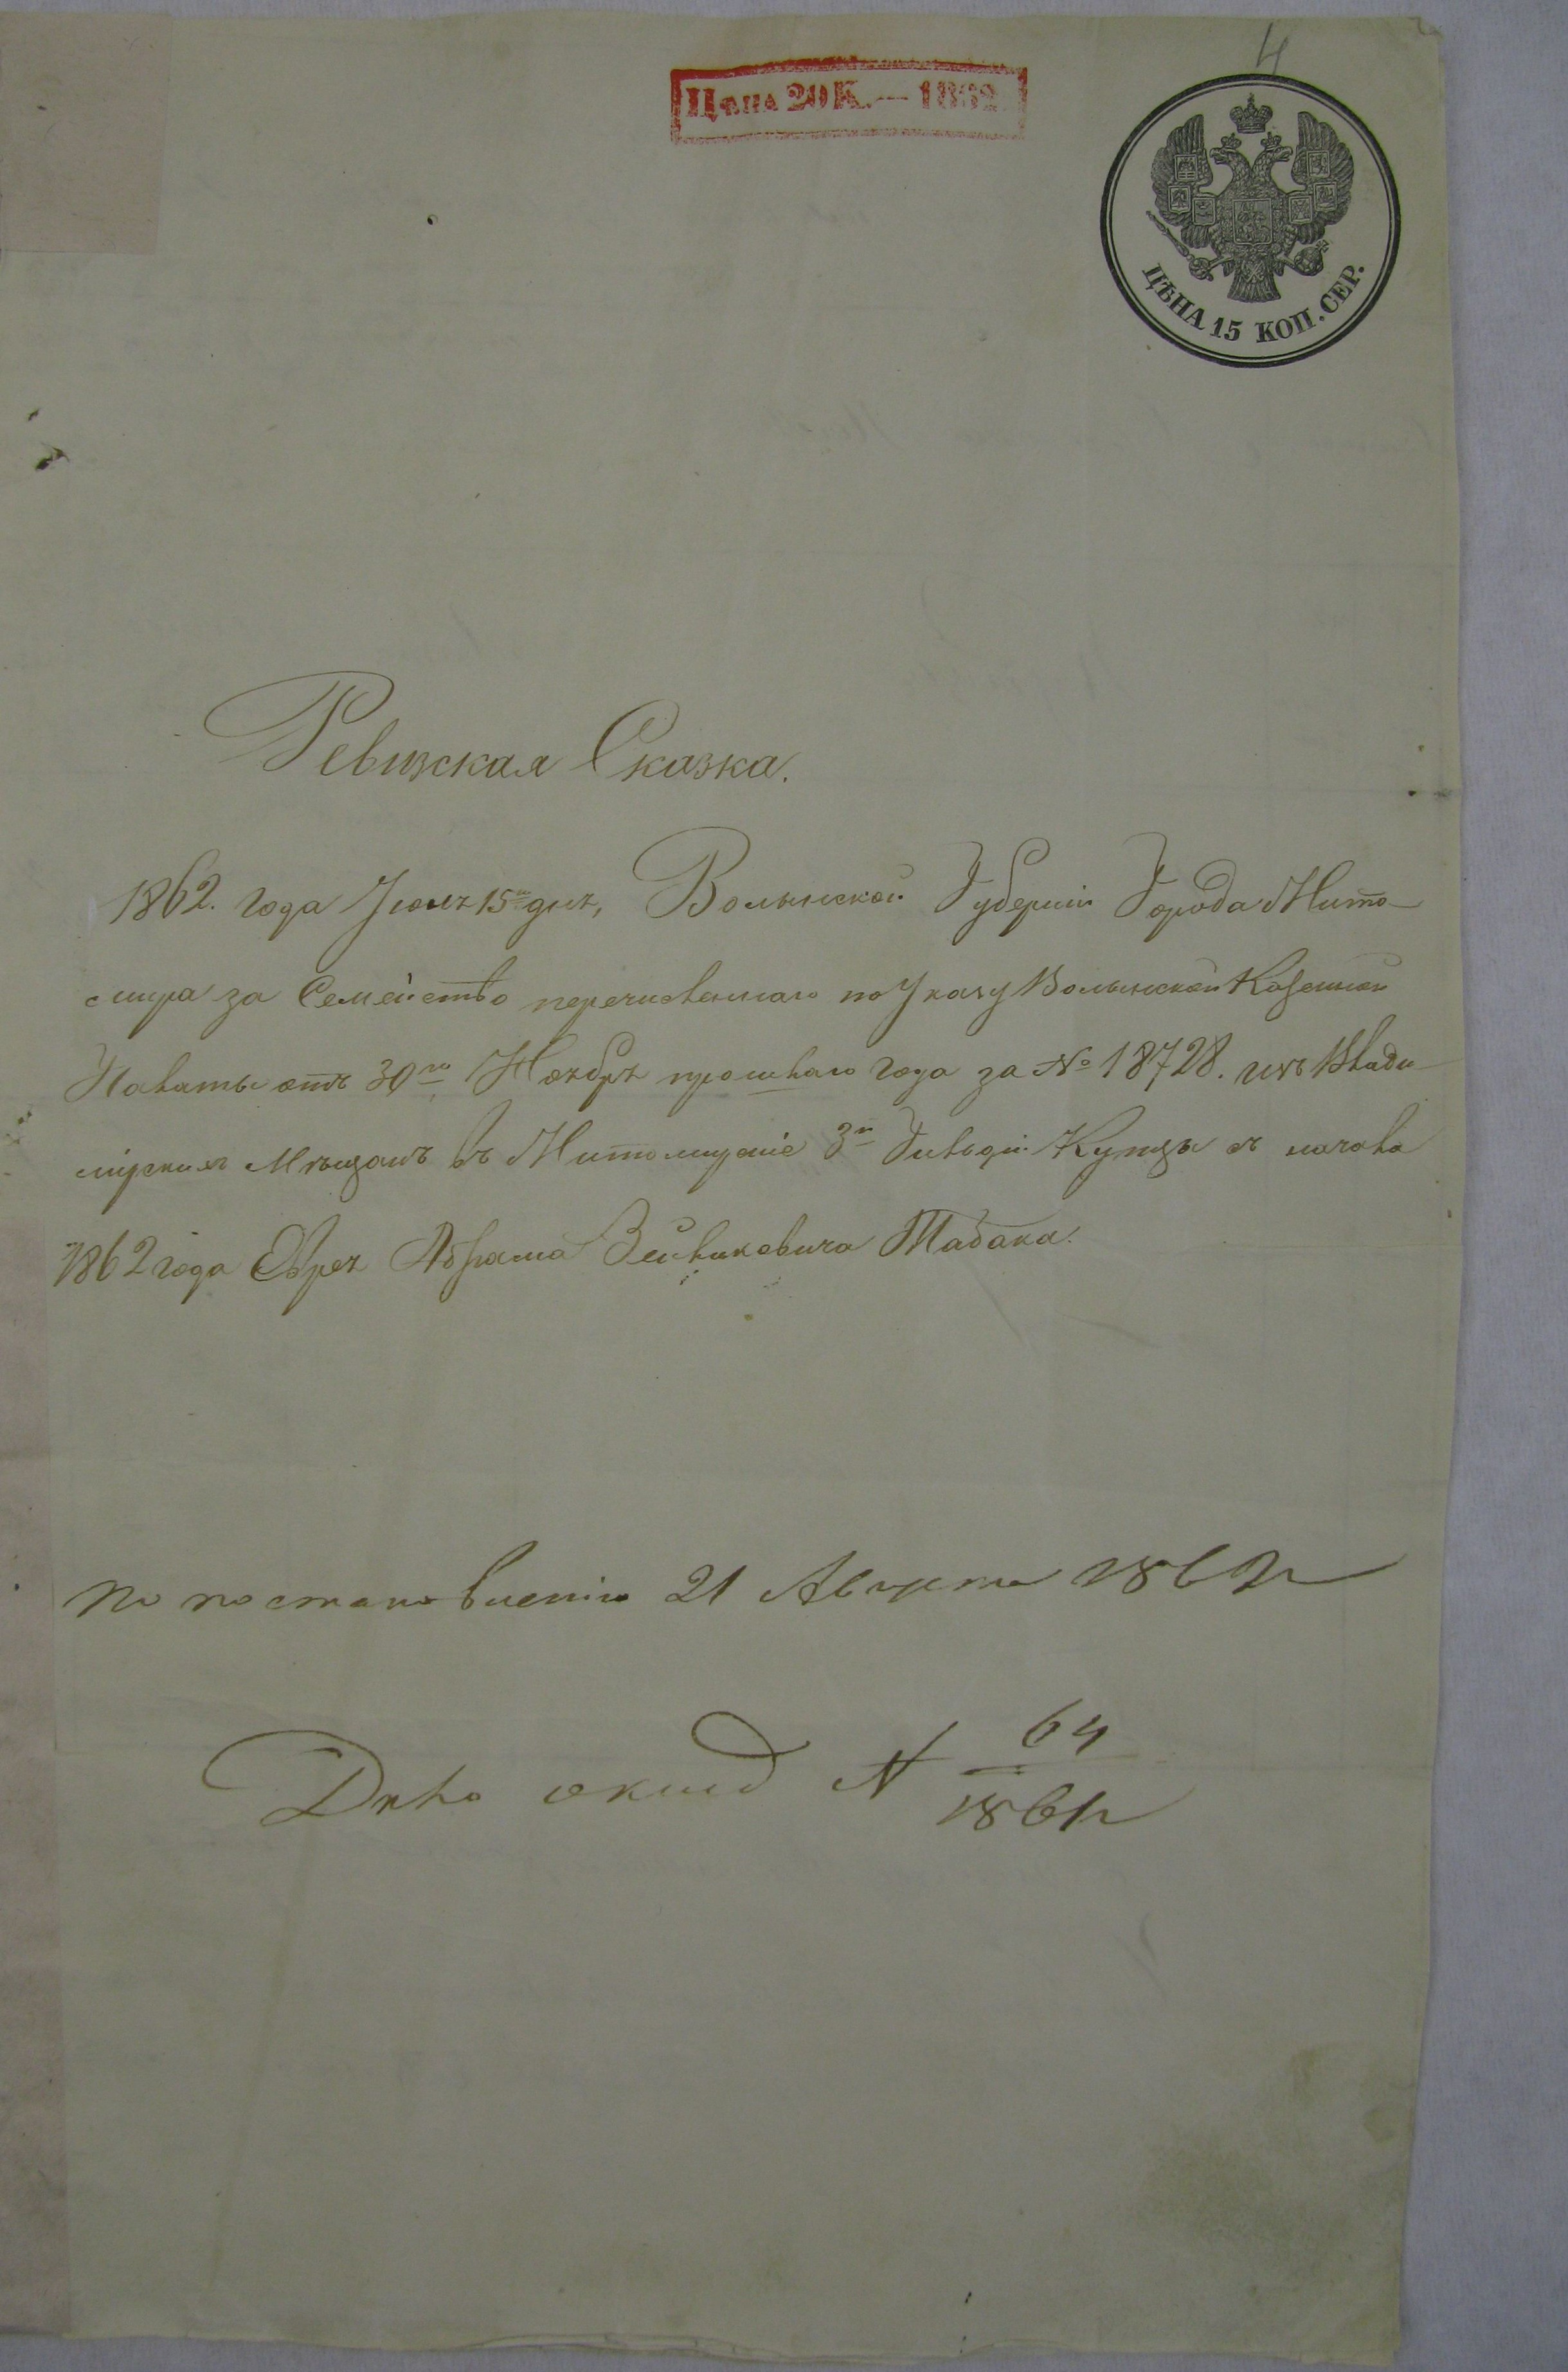 4
Цѣна 20 К. — 1862
ЦѢНА 15 КОП. СЕР.
Ревизская Сказка.
1862. года Іюня 15го дня, Волынской Губерніи Города Жито-
мира за Семейство перечисленнаго по Указу Волынской Казенной
Палаты отъ 30го Ноября прошлаго года за № 18728. изъ Влади-
мірскихъ Мѣщанъ въ Житомирскіе 3й Гильдіи Купцы съ начала
1862 года Еврея Абрама Табака.
По постановленію 21 Августа 1862 г
Дѣло № 64
1861 г